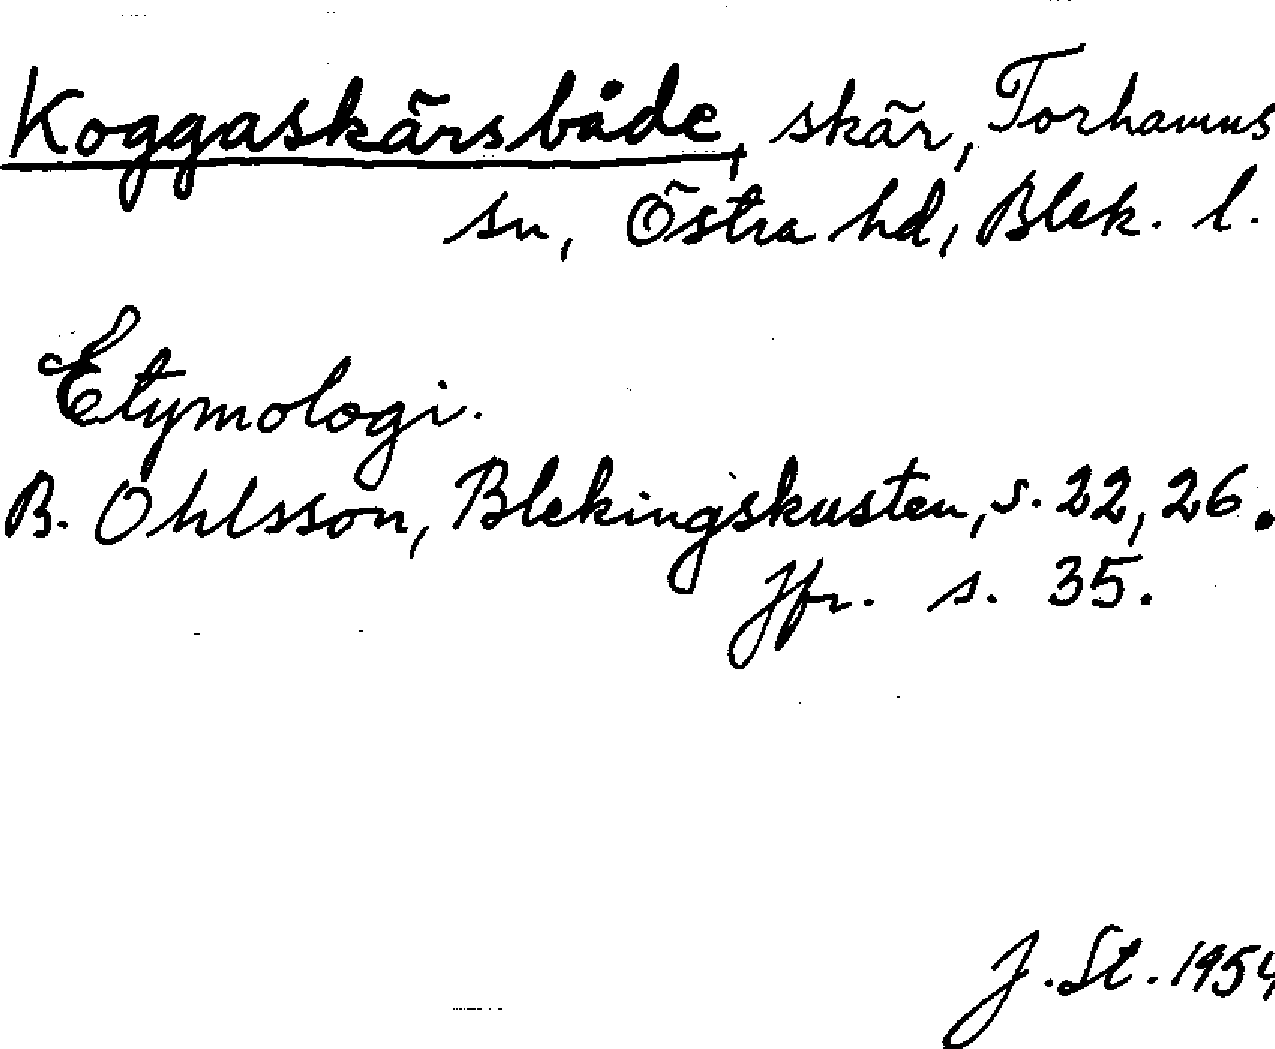 Koggaskärsbåde, skär, Torhamns
sn, Östra hd, Blek. l.
Etymologi.
B. Ohlsson, Blekingskusten, s. 22, 26.
Jfr. s. 35.
J. St. 1954